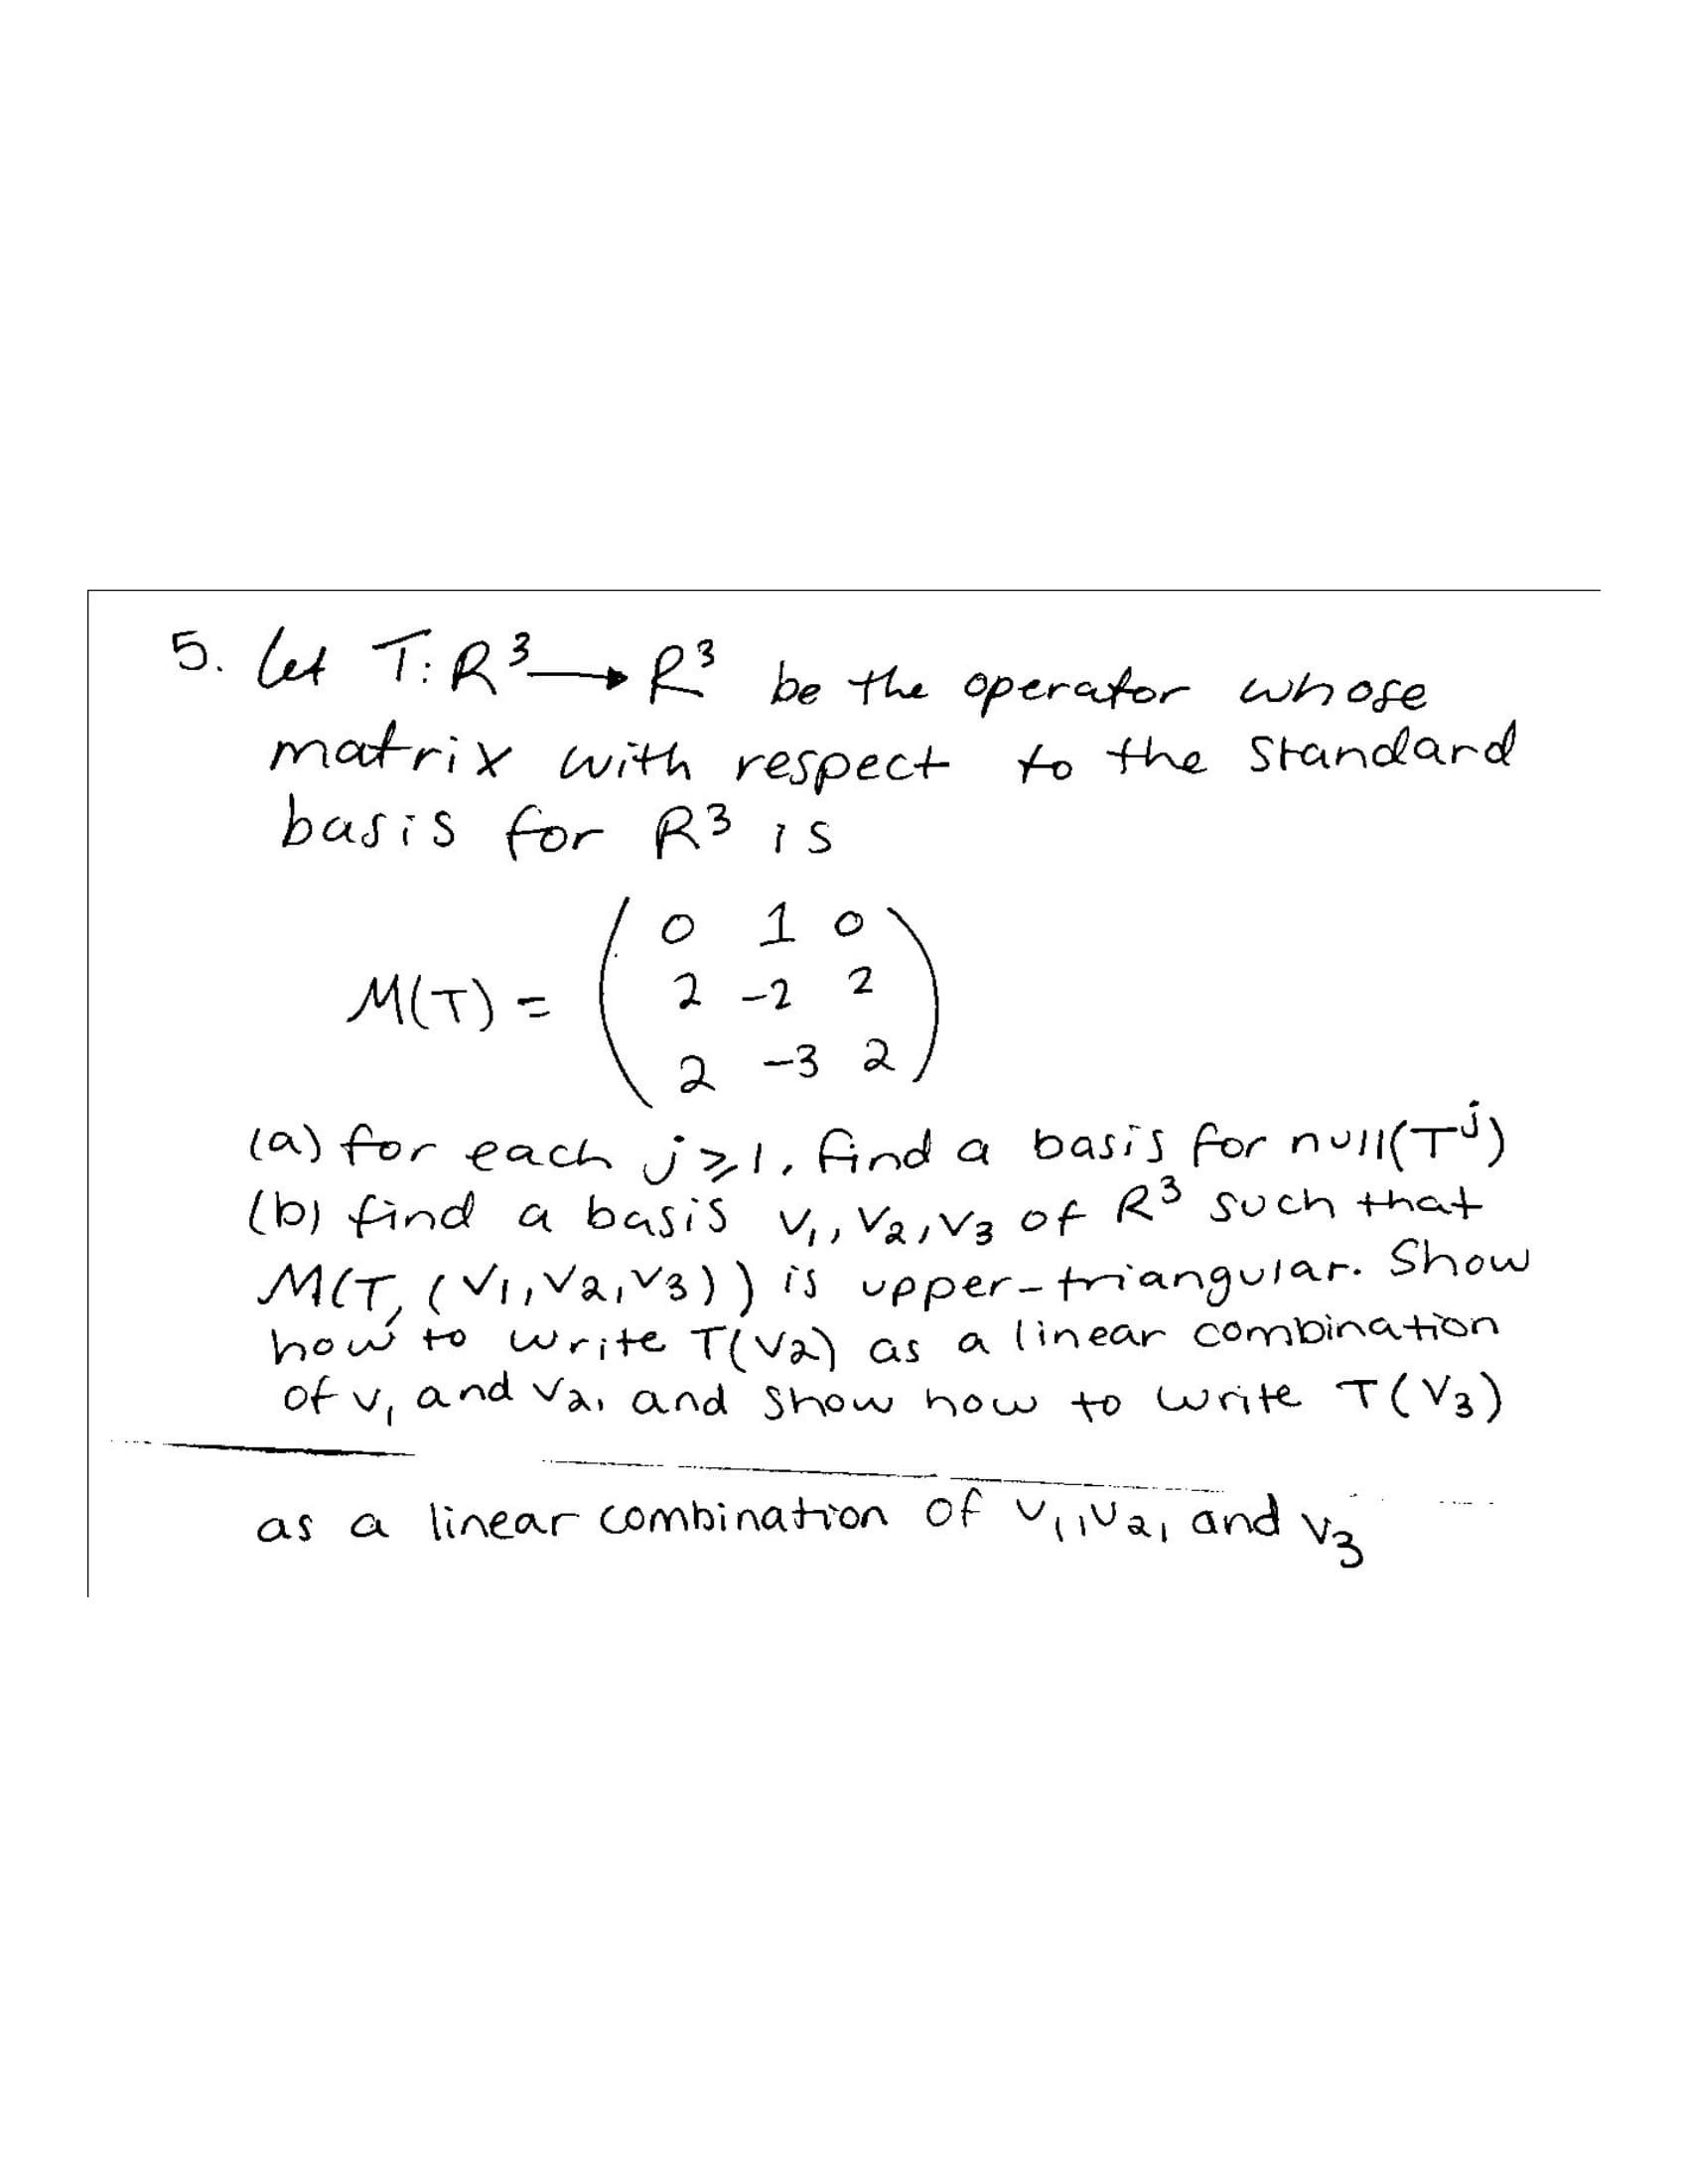 5. Let T: R³ → R³ be the operator whose
matrix with respect to the standard
basis for R³ is
0 1 0
M(T) = 2 -2 2
2 -3 2
(a) for each j ⩾ 1, find a basis for null(Tʲ)
(b) find a basis v₁, v₂, v₃ of R³ such that
M(T, (v₁, v₂, v₃)) is upper-triangular. Show
how to write T(v₂) as a linear combination
of v₁ and v₂, and show how to write T(v₃)
as a linear combination of v₁, v₂, and v₃